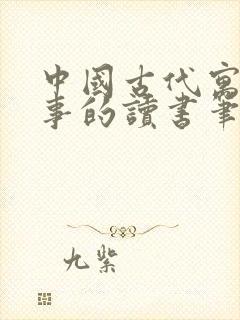 中國古代寓
事的讀書筆
九紫